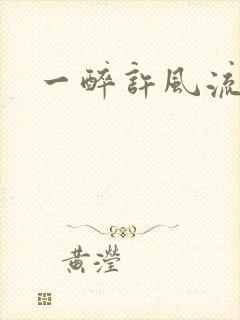 一醉許風流
黃瀅